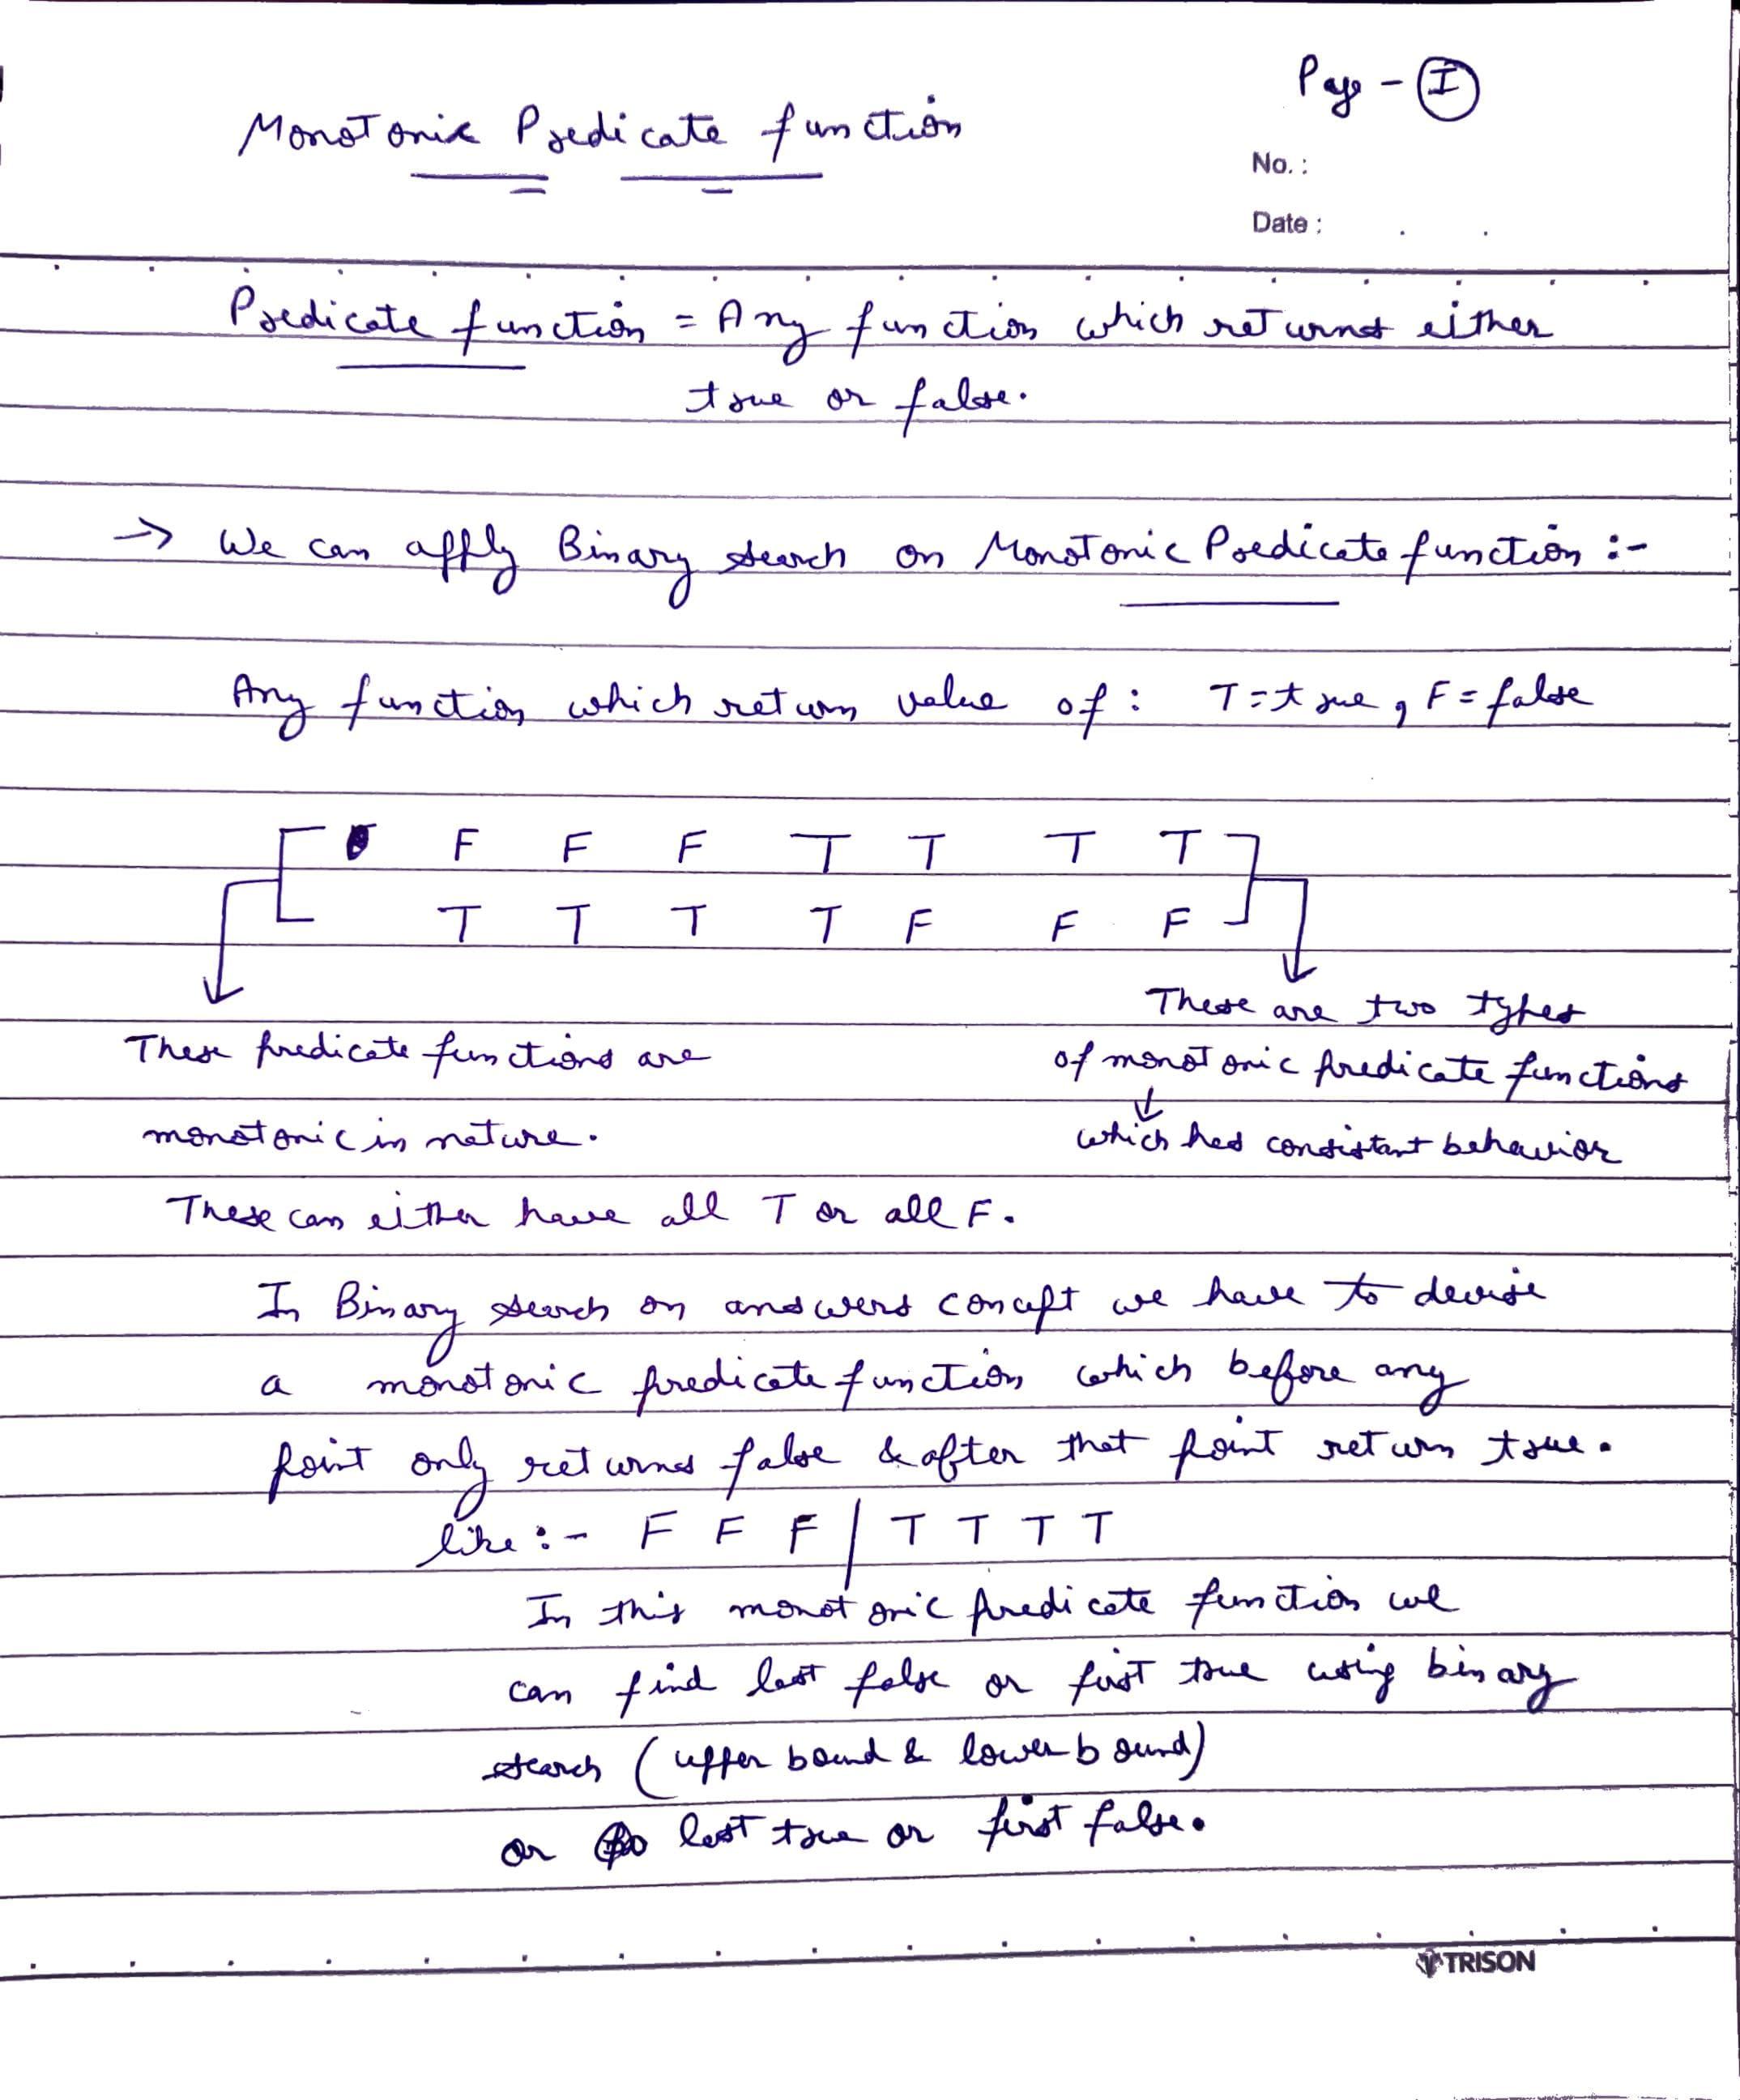 Page - I
Monotonic Predicate function
No. :
Date :
Predicate function = Any function which returns either
true or false.
-> We can apply Binary search on Monotonic Predicate function :-
Any function which return value of : T = true , F = false
F F F T T T T
T T T T F F F
These are two types
These predicate functions are
of monotonic predicate functions
monotonic in nature.
which has consistant behavior
These can either have all T or all F.
In Binary search on answers concept we have to devise
a monotonic predicate function which before any
point only returns false & after that point return true.
like :- F F F | T T T T
In this monotonic predicate function we
can find last false or first true using binary
search (upper bound & lower bound)
or last true or first false.
TRISON